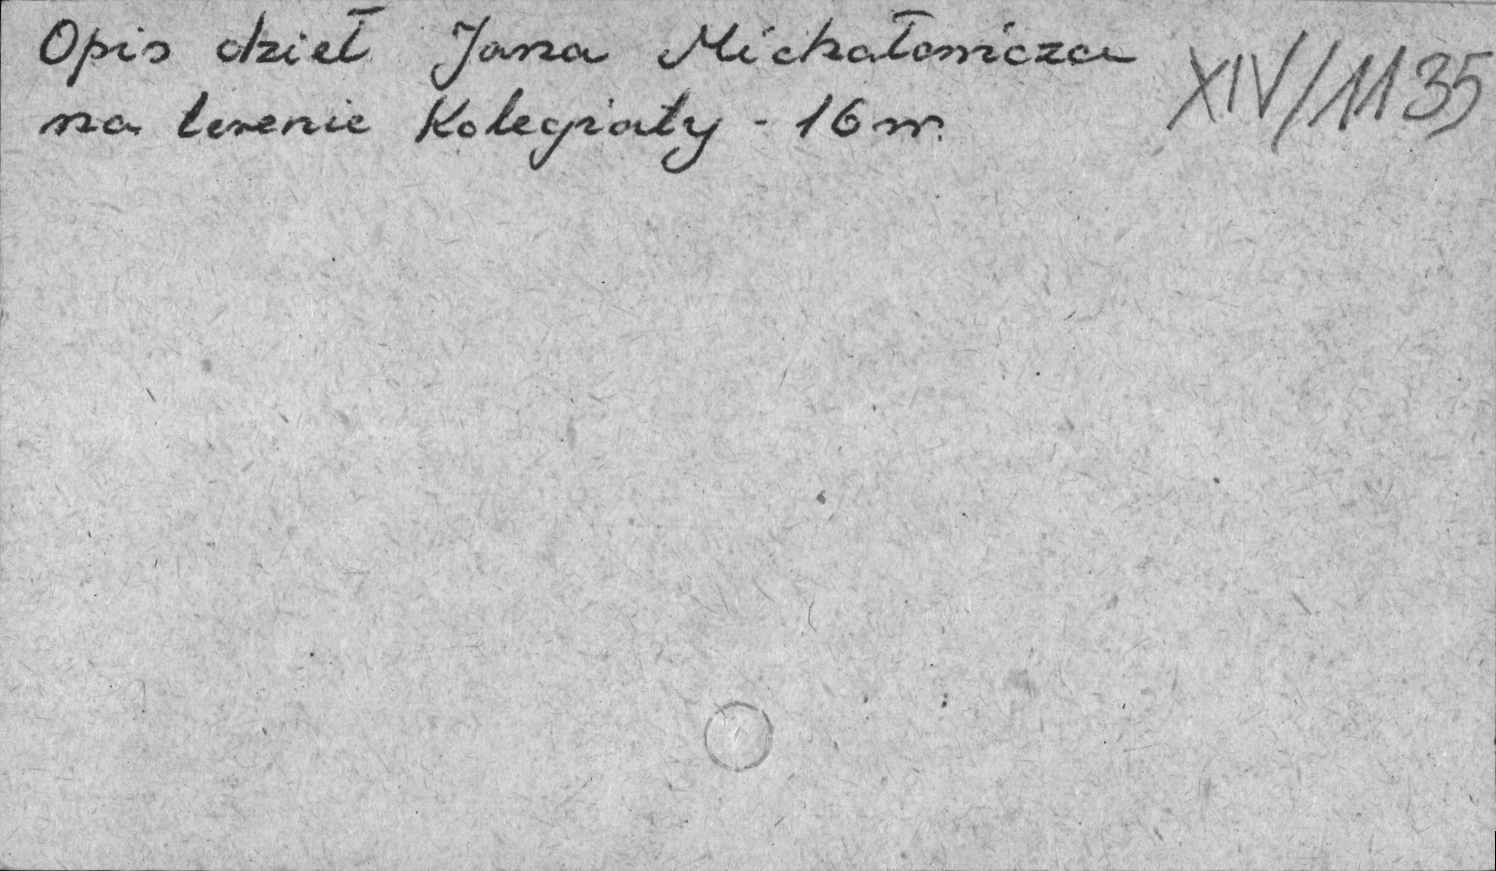 Opis dzieł Jana Michałowicza XIV/1135
na terenie Kolegiaty - 16 w.